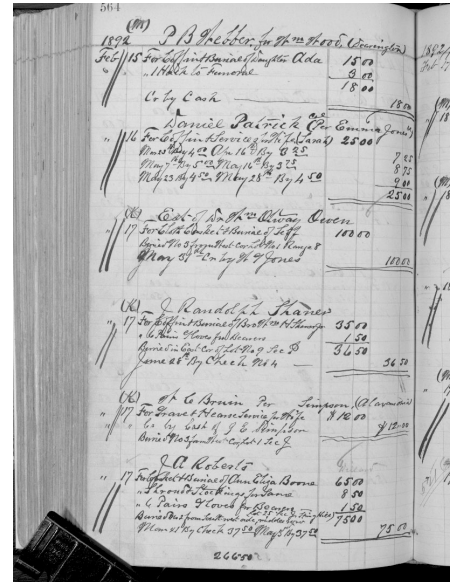 564
(M)
1892 P B Webber for Wm Wood (Dearington)
Feb 15 For Coffin & Burial of Daughter Ada 15 00
" 1 Hack to Funeral 3 00
18 00
Cr by Cash 18 00
Daniel Patrick Col (Per Emma Jones)
" 16 For Coffin & Service for Wife (Sarah) 25 00
Mar 23d By 4 00 Apr 16th By 3 25 7 25
May 7th By 5 00 May 16th By 3 75 8 75
May 23 By 4 50 May 28th By 4 50 9 00
25 00
(K) Est of Dr Wm Alway Owen
" 17 For Cloth Casket & Burial of Self 100 00
Buried No 3 from West Cor Lot No 1 Range 8
May 3d Cr by W Jones 100 00
(K) J Randolph Shaner
" 17 For Coffin & Burial of Bro Wm H Shaner 35 00
" 6 Pairs Gloves for Bearers 1 50
Buried in East Cor of Lot No 9 Sec D 36 50
June 28th By Check No 4 36 50
(K) C Bruin Per Simpson
" 17 For Grave & Hearse Service for Wife $12 00
Cr by Cash of J E Simpson $12 00
Buried No 3 from West Cor Lot 1 Sec J
J A Roberts
" 17 For Casket & Burial of Ann Eliza Boone 65 00
" Shroud & Stockings for Same 8 50
" 6 Pairs Gloves for Bearers 1 50
75 00
Mar 21 By Check 37 50 May 5 By 37 50 75 00
266 50